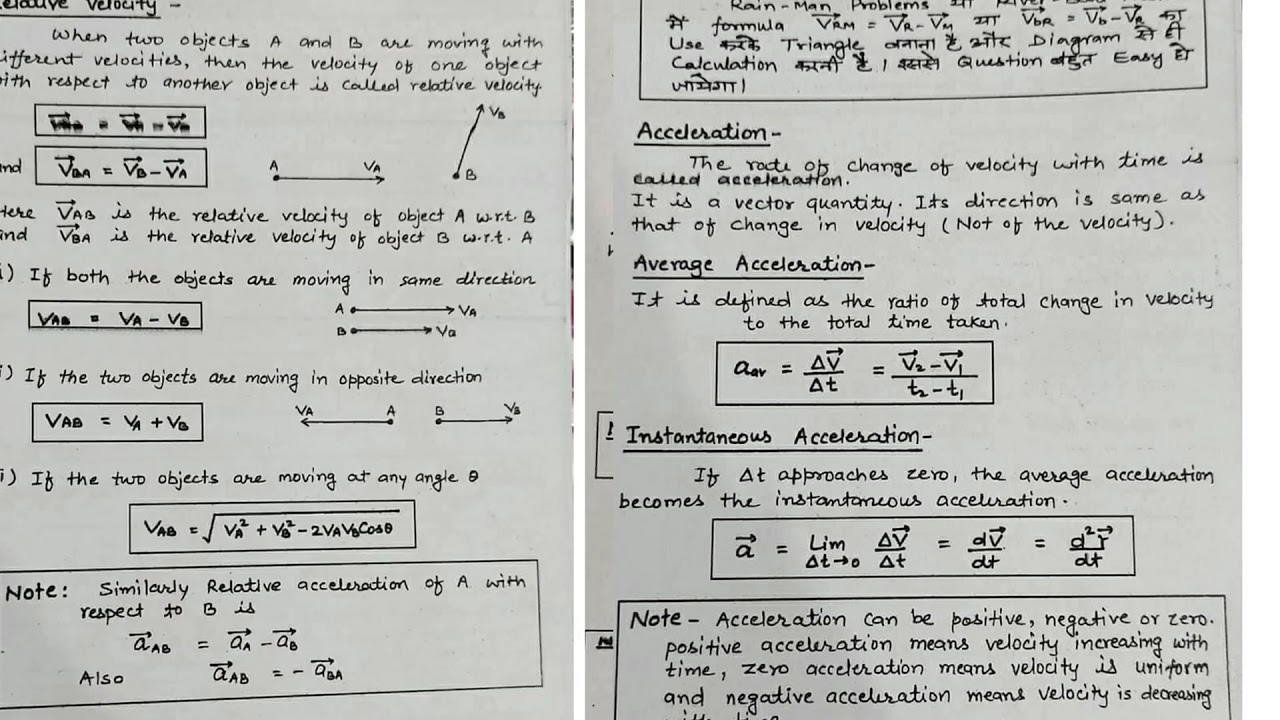 Relative Velocity -
When two objects A and B are moving with
different velocities, then the velocity of one object
with respect to another object is called relative velocity
and V⃗BA = V⃗B - V⃗A
A VA
VB
B
Here V⃗AB is the relative velocity of object A w.r.t. B
and V⃗BA is the relative velocity of object B w.r.t. A
i) If both the objects are moving in same direction
VAB = VA - VB
A VA
B
i) If the two objects are moving in opposite direction
VAB = VA + VB
VA A B VB
i) If the two objects are moving at any angle θ
VAB = √VA² + VB² - 2VAVBCosθ
Note: Similarly Relative acceleration of A with
respect to B is
a⃗AB = a⃗A - a⃗B
Also a⃗AB = - a⃗BA
Rain-Man Problems या
में formula V⃗RM = V⃗R - V⃗M या V⃗bR = V⃗b - V⃗R का
Use करके Triangle बनाना है और Diagram से ही
Calculation करनी है। इससे Question बहुत Easy हो
जायेगा।
Acceleration -
The rate of change of velocity with time is
called acceleration.
It is a vector quantity. Its direction is same as
that of change in velocity (Not of the velocity).
Average Acceleration -
It is defined as the ratio of total change in velocity
to the total time taken.
aav = ΔV⃗/Δt = V⃗2 - V⃗1/t2 - t1
! Instantaneous Acceleration -
If Δt approaches zero, the average acceleration
becomes the instantaneous acceleration.
a⃗ = Lim Δt→0 ΔV⃗/Δt = dV⃗/dt = d²r⃗/dt
Note - Acceleration can be positive, negative or zero.
positive acceleration means velocity increasing with
time, zero acceleration means velocity is uniform
and negative acceleration means velocity is decreasing